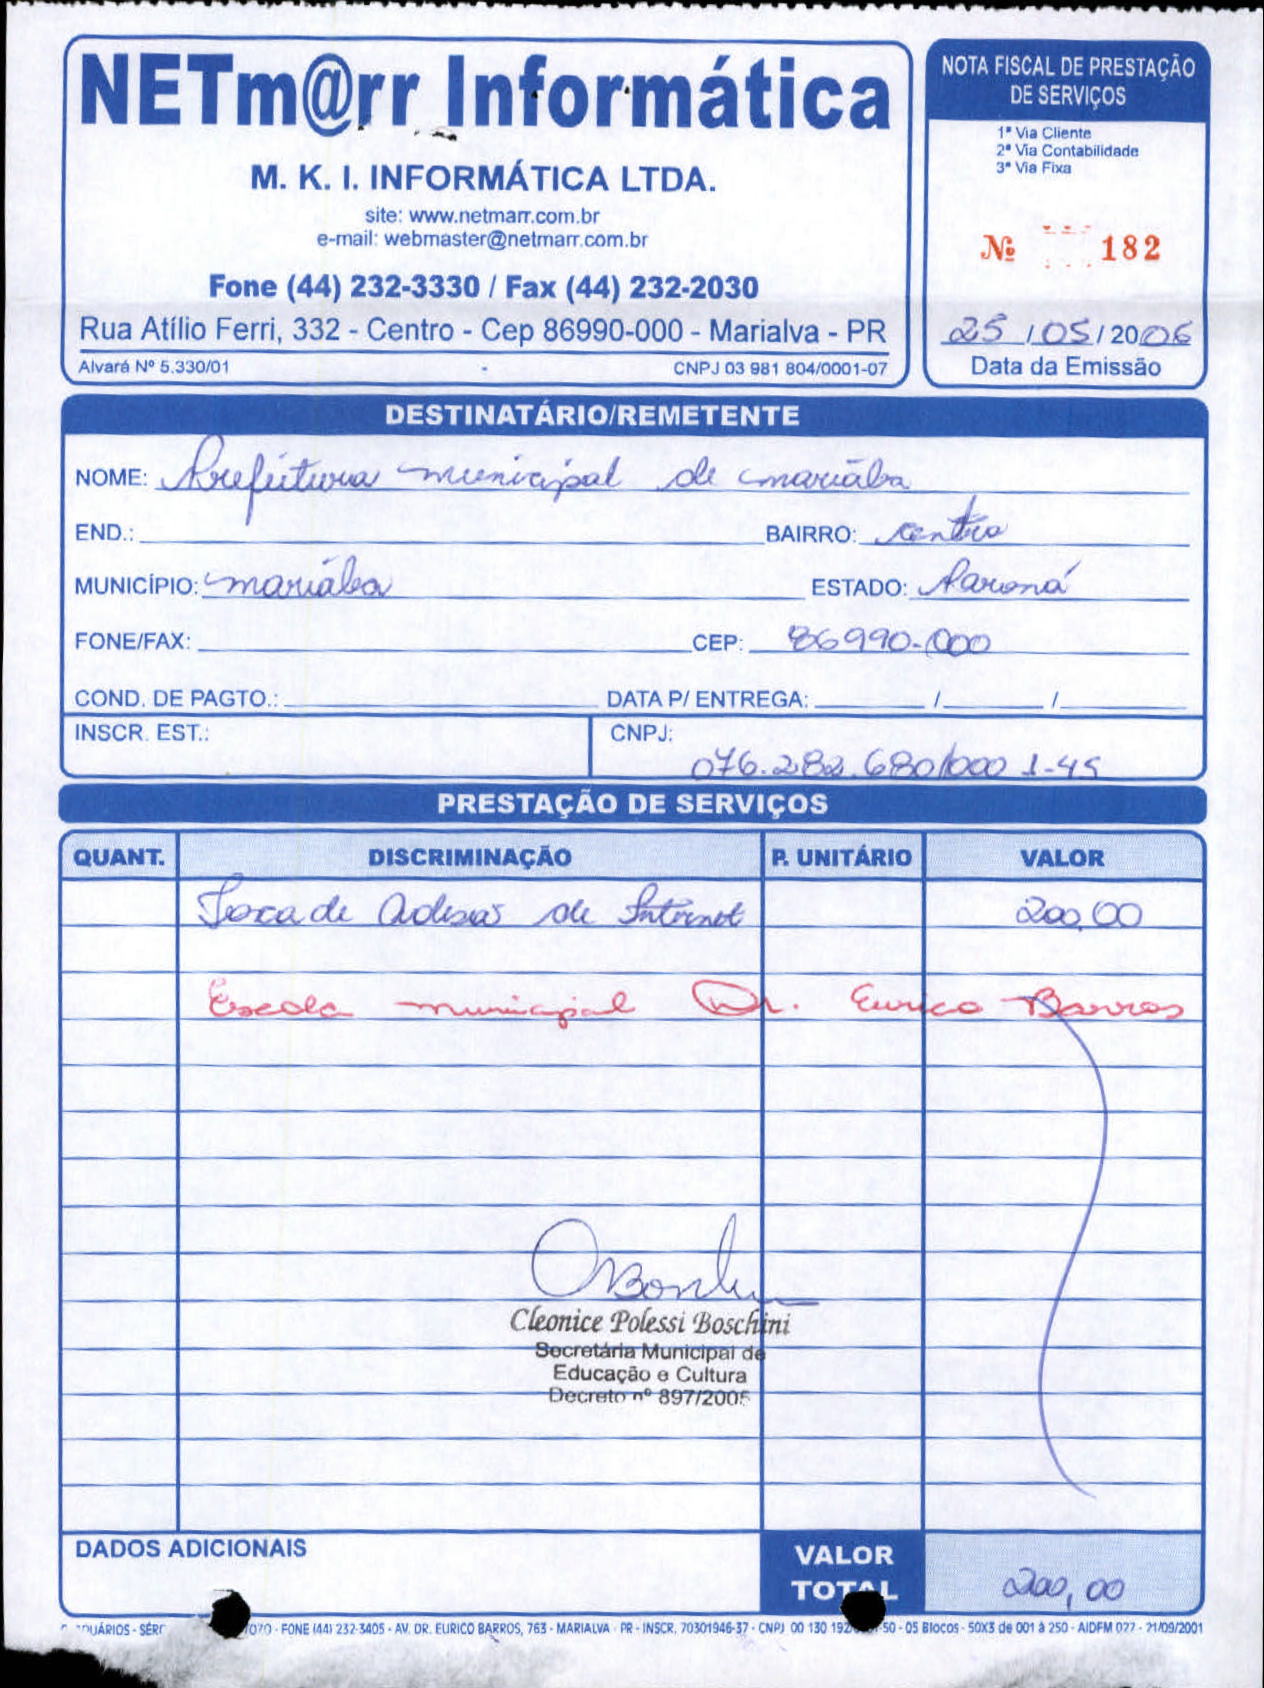 NETm@rr Informática
M. K. I. INFORMÁTICA LTDA.
site: www.netmarr.com.br
e-mail: webmaster@netmarr.com.br
Fone (44) 232-3330 / Fax (44) 232-2030
Rua Atílio Ferri, 332 - Centro - Cep 86990-000 - Marialva - PR
Alvará Nº 5.330/01 CNPJ 03 981 804/0001-07
NOTA FISCAL DE PRESTAÇÃO
DE SERVIÇOS
1ª Via Cliente
2ª Via Contabilidade
3ª Via Fixa
Nº 182
25 / 05 / 2006
Data da Emissão
DESTINATÁRIO/REMETENTE
NOME: Prefeitura municipal de marialva
END.: BAIRRO: centro
MUNICÍPIO: marialva ESTADO: Paraná
FONE/FAX: CEP: 86990-000
COND. DE PAGTO.: DATA P/ ENTREGA: / /
INSCR. EST.: CNPJ:
076.282.680/0001-45
PRESTAÇÃO DE SERVIÇOS
QUANT. DISCRIMINAÇÃO P. UNITÁRIO VALOR
Taxa de Adesão de Internet 200,00
Escola municipal Dr. Eurico Barros
Cleonice Polessi Boschini
Secretária Municipal de
Educação e Cultura
Decreto nº 897/2005
DADOS ADICIONAIS VALOR
TOTAL 200,00
FONE (44) 232-3405 - AV. DR. EURICO BARROS, 763 - MARIALVA - PR - INSCR. 70301946-37 - CNPJ 00 130 192 50 - 05 Blocos - 50X3 de 001 à 250 - AIDFM 027 - 21/09/2001